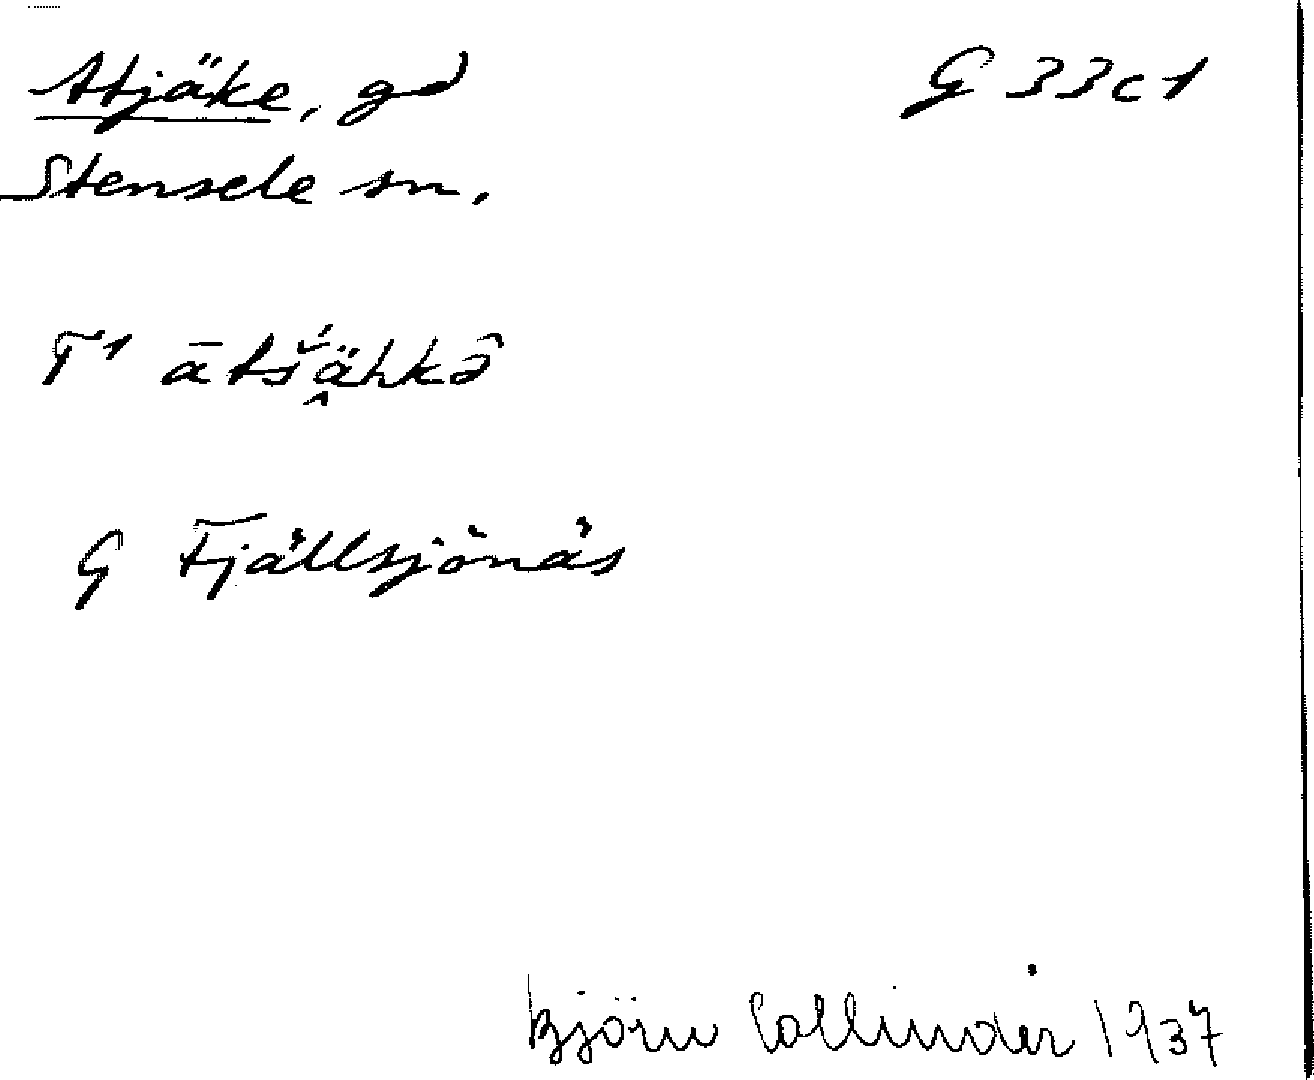 Atjäke, gd G 33c1
Stensele sn.
T1 ātš́ä̭hkə̂
G Fjällsjönäs
Björn Collinder 1937